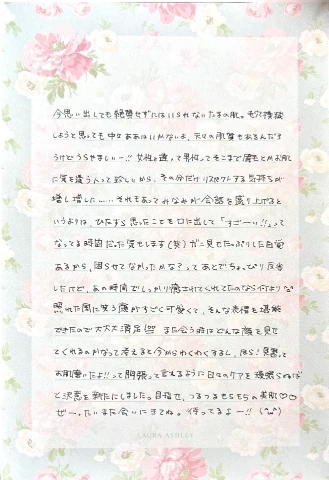 今思い出しても絶賛せずにはいられないたまの肌。もう横領
しようと思っても中々ああはいかないよ、元々の肌質もあるんだろ
うけどうらやましいー!!女性と違って男性ってそこまで肌とかお肌
に気を遣う人って珍しいから、その分だけリスペクトする気持ちが
増し増しに……それもあってみなみが会話を盛り上げると
いうよりは、ひたすら思ったことを口に出して「すごーい!!」って
なってる時間だった気もします(笑)ガン見してたっぷりした自覚
あるから、困らせてなかったかな?ってあとでちょっぴり反省
したけど、あの時間でしっかり癒されてくれてたのなら何より
照れた風に笑う顔がすごく可愛くて、そんな表情を堪能
できたので大大大満足 また会う時はどんな顔を見せ
てくれるのかなって考えると今からわくわくするし、ほら!見習って
お肌磨いたよ!!って胸張って言えるように日々のケアを頑張らねば
と決意を新たにしました。目指せ、つるつるもちもちの美肌♡♡
ぜーったいまた会いにきてね。待ってるよー!!(^ω^)
LAURA ASHLEY